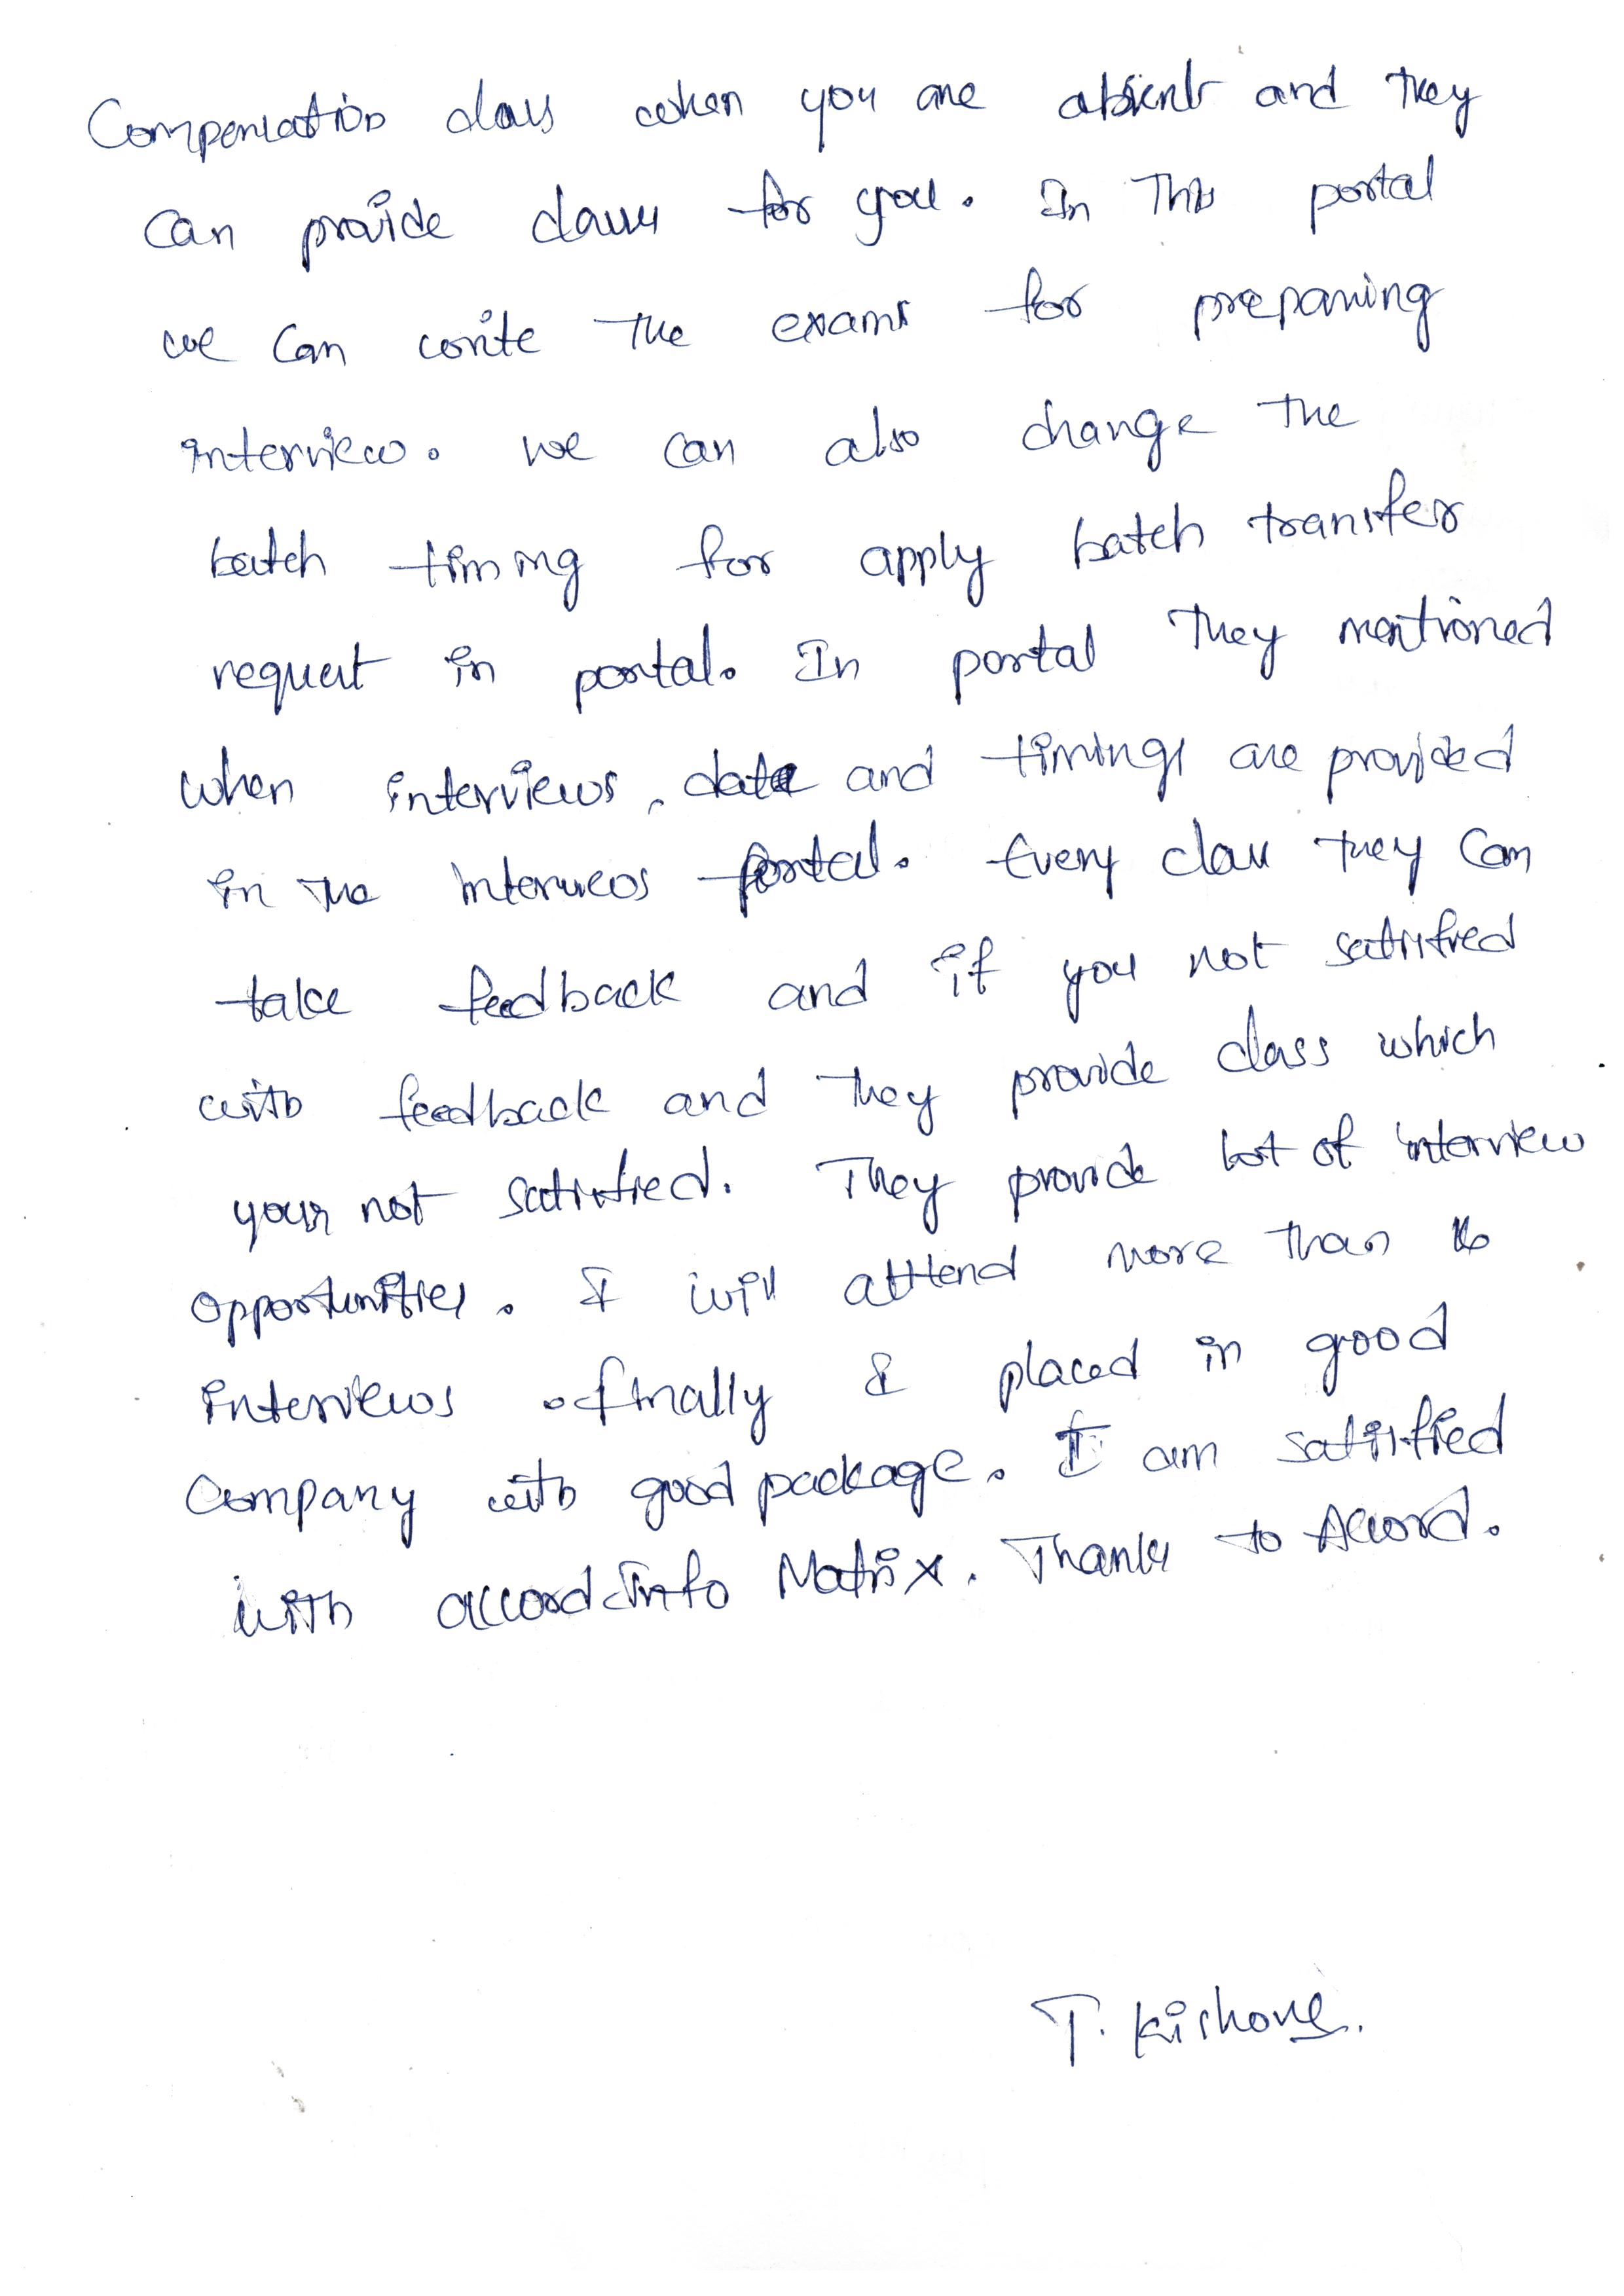 Compensation class when you are absent and they
can provide class for you. In this portal
we can write the exams for preparing
interview. we can also change the
batch timing for apply batch transfer
request in portal. In portal they mentioned
when interviews, date and timings are provided
in the interviews portal. Every class they can
take feedback and if you not satisfied
with feedback and they provide class which
your not satisfied. They provide lot of interview
opportunities. I will atttend more than 16
interviews . finally I placed in good
company with good package. I am satisfied
with accord info Matrix. Thanks to Accord.
T. Kishore.